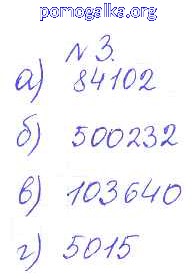 pomogalka.org
№ 3.
а) 84102
б) 500232
в) 103640
г) 5015